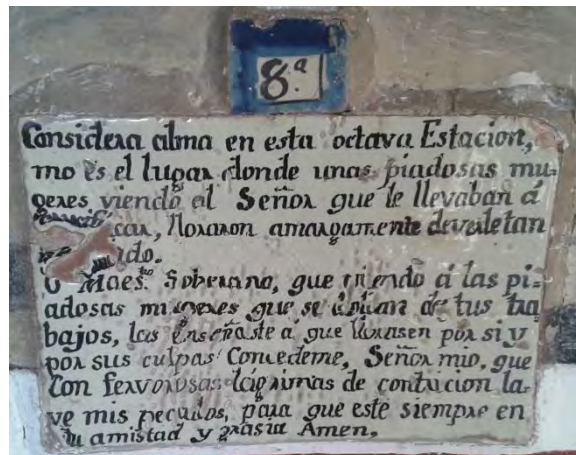 8.ª
Considera alma en esta octava Estacion,
mo es el lugar donde unas piadosas mu-
geres viendo al Señor que le llevaban á
car, lloraron amargamente de verle tan
do.
O Maes.tro Soberano, que viendo á las pi-
adosas mugeres que se dolian de tus tra
bajos, las enseñaste á que llorasen por si y
por sus culpas Concedeme, Señor mio, que
con fervorosas lagrimas de contricion la-
ve mis pecados, para que esté siempre en
tu amistad y grasia Amen,